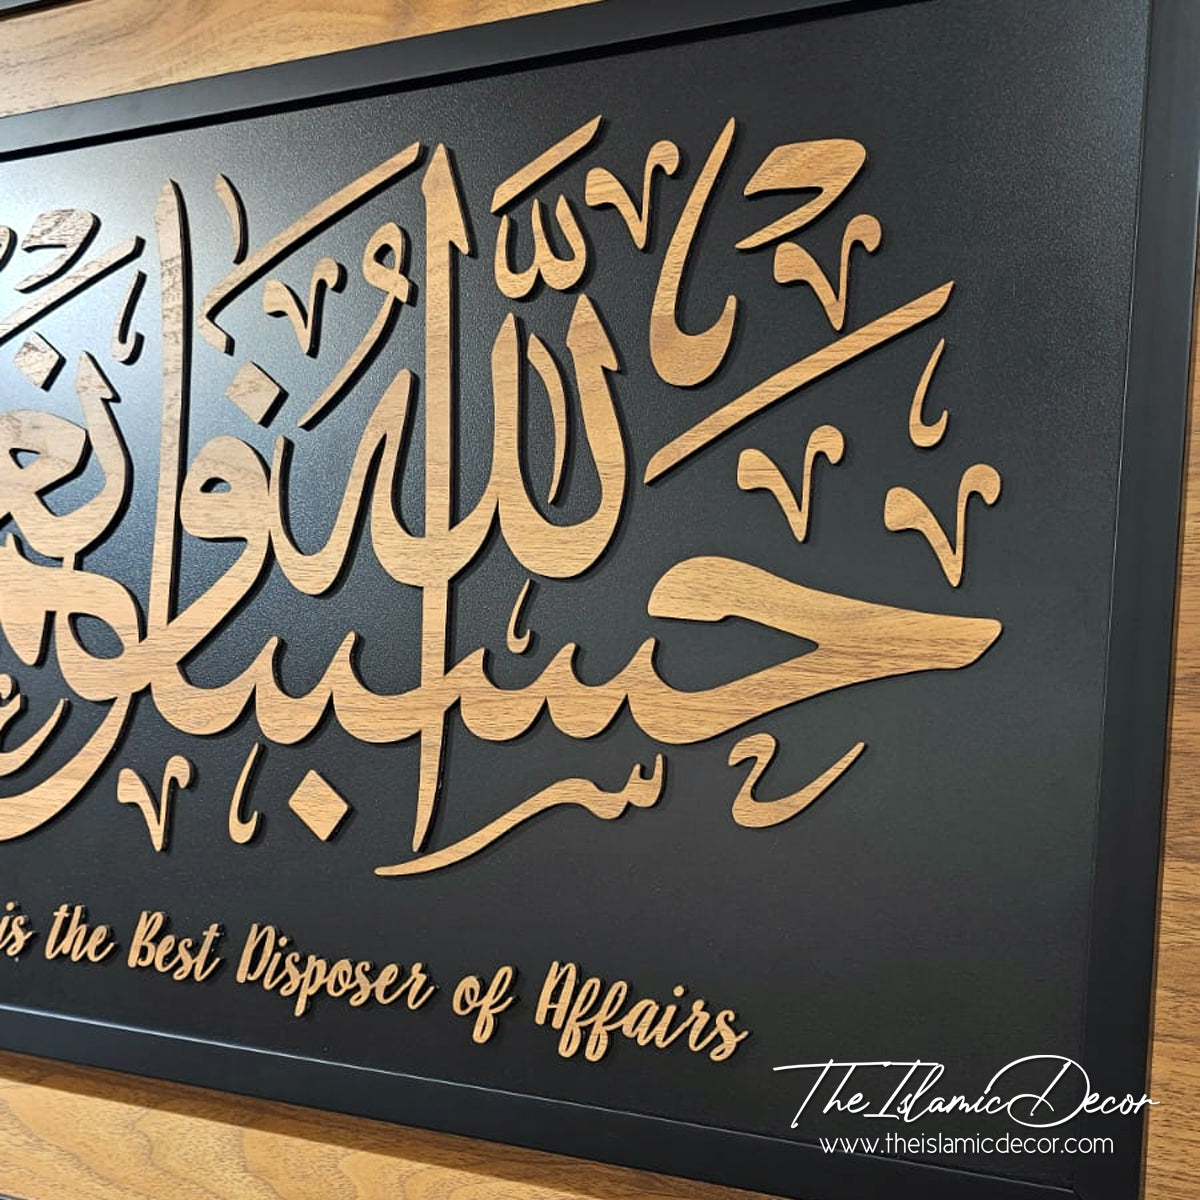 حسبنا الله ونعم
is the Best Disposer of Affairs
The Islamic Decor
www.theislamicdecor.com